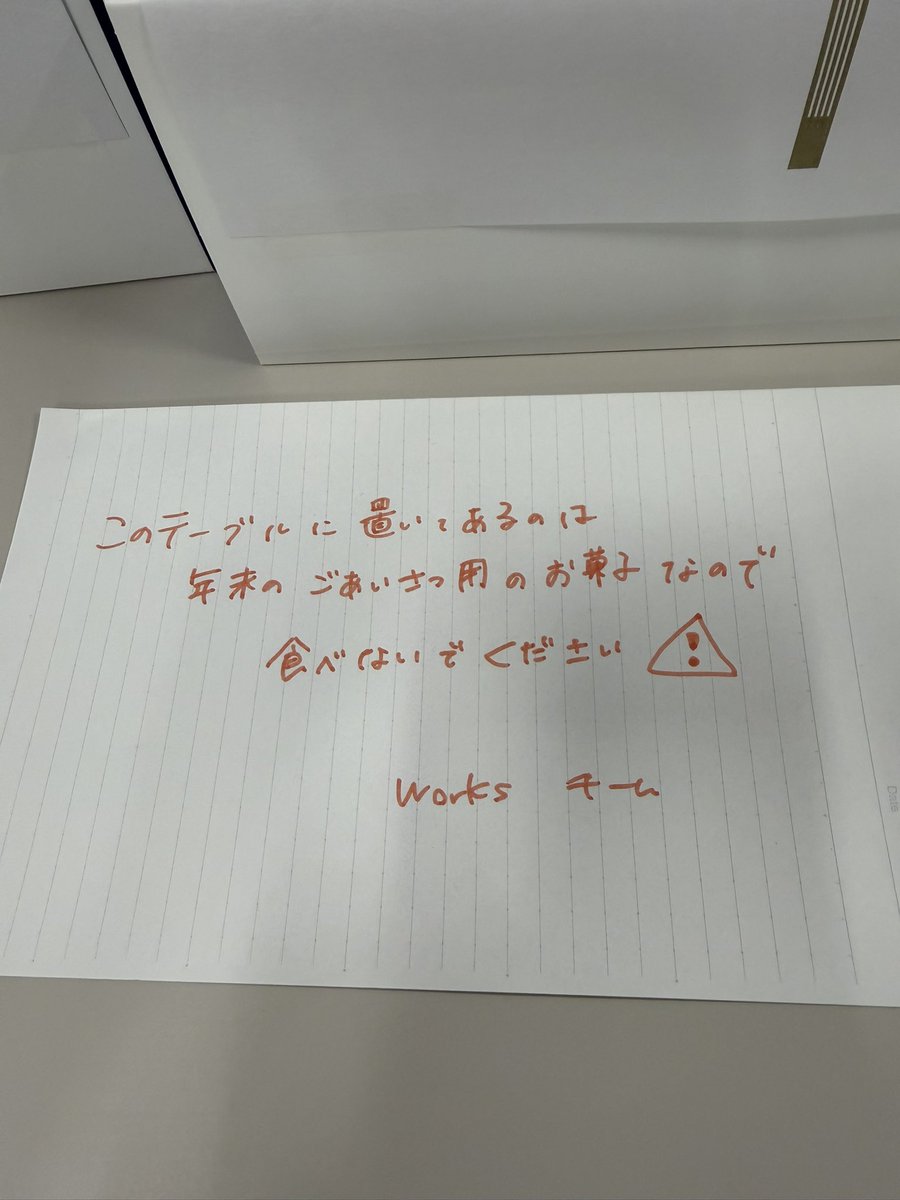 このテーブルに置いてあるのは
年末のごあいさつ用のお菓子なので
食べないでください ⚠
Works チーム
Date